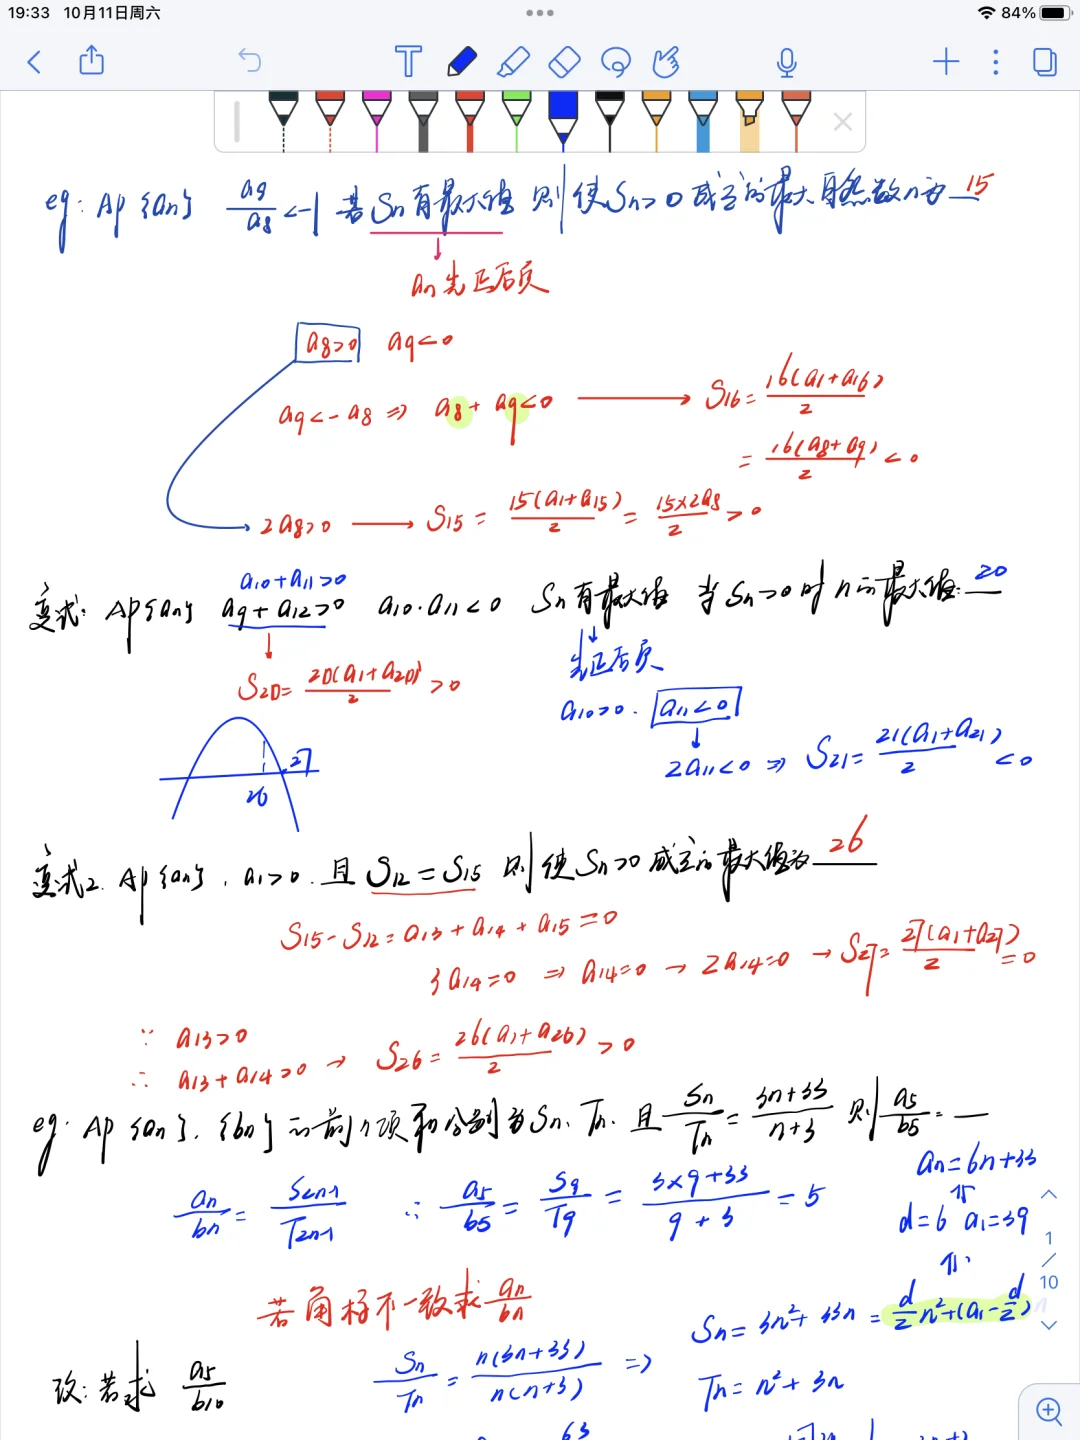 19:33 10月11日周六 84%
eg: AP {an} a9/a8 <-1 若Sn有最大值 则使Sn>0成立的最大自然数n为 15
an先正后负
a8>0 a9<0
a9<-a8 ⇒ a8+a9<0 → S16= 16(a1+a16)/2
= 16(a8+a9)/2 <0
2a8>0 → S15 = 15(a1+a15)/2 = 15×2a8/2 >0
a10+a11>0
变式: AP{an} a9+a12>0 a10·a11<0 Sn有最大值 当Sn>0时n的最大值: 20
↓ 先正后负
S20= 20(a1+a20)/2 >0
a10>0. a11<0
2a11<0 ⇒ S21= 21(a1+a21)/2 <0
27
26
变式2. AP{an}, a1>0. 且S12=S15 则使Sn>0成立的最大值为 26
S15-S12=a13+a14+a15=0
3a14=0 ⇒ a14=0 → 2a14=0 → S27= 27(a1+a27)/2 =0
∵ a13>0
∴ a13+a14>0 → S26= 26(a1+a26)/2 >0
eg. AP {an}, {bn}的前n项和分别为Sn、Tn. 且 Sn/Tn = 3n+33/n+3 则 a5/b5 =
an/bn = S2n-1/T2n-1 ∴ a5/b5 = S9/T9 = 3×9+33/9+3 = 5
an=6n+33
⇑
d=6 a1=39
⇑
若角标不一致求 an/bn
Sn= 3n²+33n = d/2 n²+(a1-d/2)n
改: 若求 a5/b10
Sn/Tn = n(3n+33)/n(n+3) ⇒
Tn= n²+3n
63
1
/
10